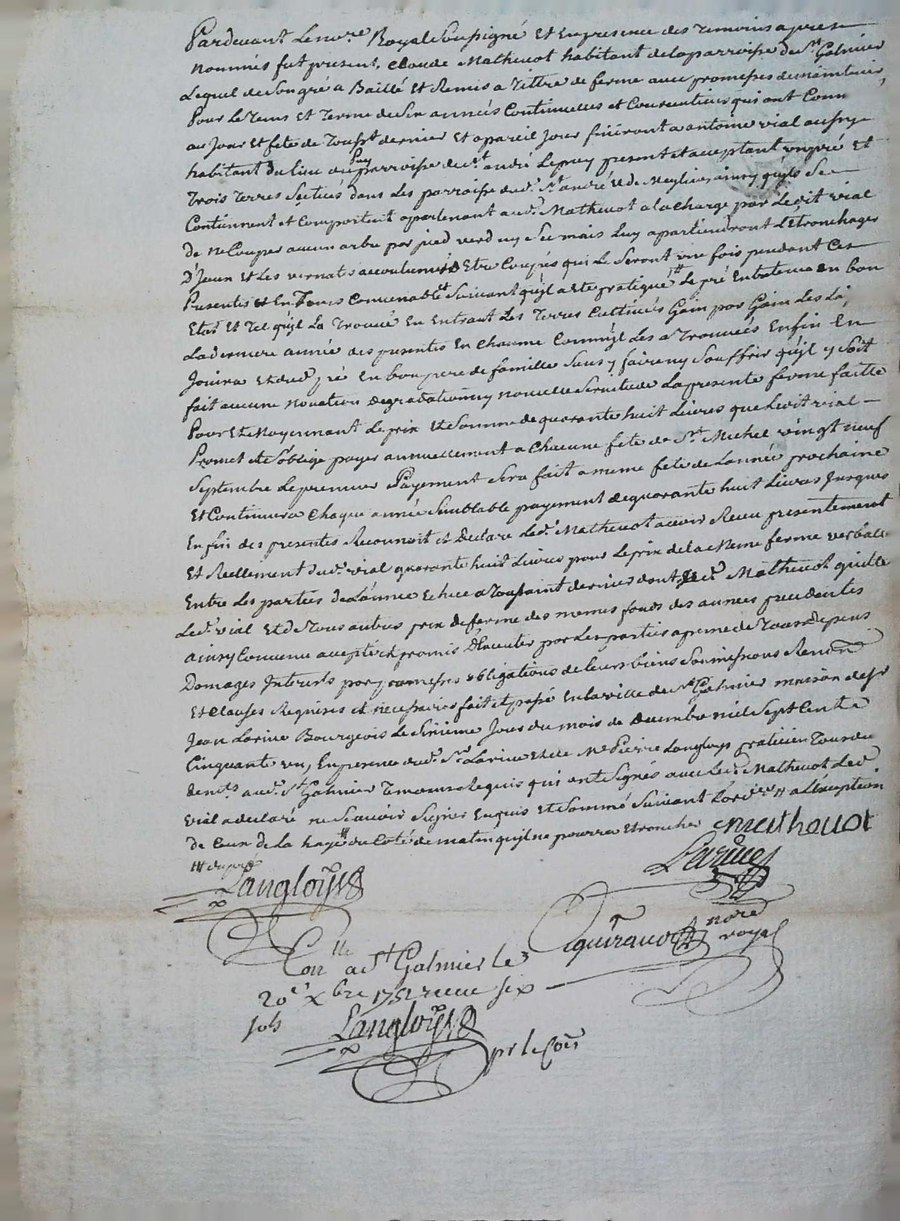 Pardevant Le no.re Royal Soussigné Et En presence des Temoins apres
nommés fut present, Claude Mathevot habitant de la parroisse de S.t Galmier
Lequel de Son gré a Baillé Et Remis a Tittre de ferme avec promesses de maintenir
Pour Le Tems Et Terme de Six années Continuelles et Consecutives qui ont Comm
au Jour et fête de Tousst dernier Et a pareil Jour finiront a antoine vial aussy
habitant du lieu du Puy parroisse de S.t andré Lepuy present et acceptant un pré Et
Trois Terres Scitués dans Les parroisse dud. S.t andré et de ainsy qu'ils Se
Contiennent et Comportent apartenant aud. Mathevot a la Charge par Ledit vial
de ne Couper aucun arbre par pied verd ny Sec mais Luy apartiendront L'Etronchages
D'Jceux Et Les vernats accoutumés d'Etre Coupés qui Le Seront une fois pendant Ces
Presentes Et En Tems Convenable Suivant qu'il a été pratiqué Le pré En bon
Etat Et Tel qu'il La Trouvé En Entrant Les Terres Cultivés Gain par Gain Les
La derniere année des presentes En Chaume Comm'il Les a Trouvées Enfin En
Jouira Et dud. pré En bon pere de famille Sans y faire ny Souffrir qu'il y Soit
fait aucune novation degradation ny nouvelle Servitude La presente ferme faitte
Pour Et Moyennant Le prix Et Somme de quarante huit Livres que Ledit vial
Promet Et S'oblige payer annuellement a Chacune fete de S.t Michel vingt neuf
Septembre Le premier Payement Sera fait a meme fete de L'année prochaine
Et Continuera Chaque année Semblable payement de quarante huit Livres Jusques
En fin des presentes Reconnoit et Declare Led. Mathevot avoir Receu presentement
Et Reellement dud. vial quarante huit Livres pour Le prix de la Meme ferme verballe
Entre Les parties de L'année Echue a Toussaint dernier dont Led. Mathevot quitte
Led. vial Et de Tous autres prix de ferme des memes fonds des années precedentes
ainsy Convenu accepté et promis D'Executer par Les parties a peine de Tous depens
Domages Interets par promesses obligations de leurs biens Soumissions Renon.on
Et Clauses Requises et necessaires fait et passé En la ville de S.t Galmier maison de S.r
Jean Larive Bourgeois Le Sixieme Jours du mois de decembre mil Sept Cent
Cinquante un, En presence dud. S.r Larive Et de M.e Pierre Langloys praticien Tous deux
aud. S.t Galmier Temoins Requis qui ont Signés avec Led. Mathevot Led.
vial a declaré ne Scavoir Signer Enquis Et Sommé Suivant L'ord.ce a L'exception
de Ceux de La haye du Coté de matin qu'il ne pourra Etroncher Mathevot
dupré
Langloys Larive
no.re
royal
Con.lle a S.t Galmier le
20.e Xbre 1751 receu six
sols
Langloys
pr le Con.r